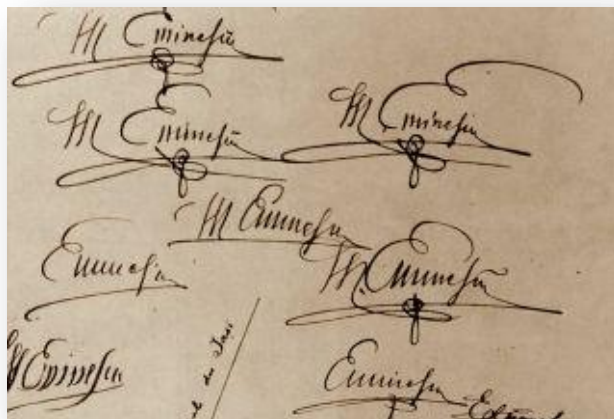 M Eminescu
M Eminescu
M Eminescu
M Eminescu
Eminescu
M Eminescu
M Eminescu
Eminescu
de Iasi